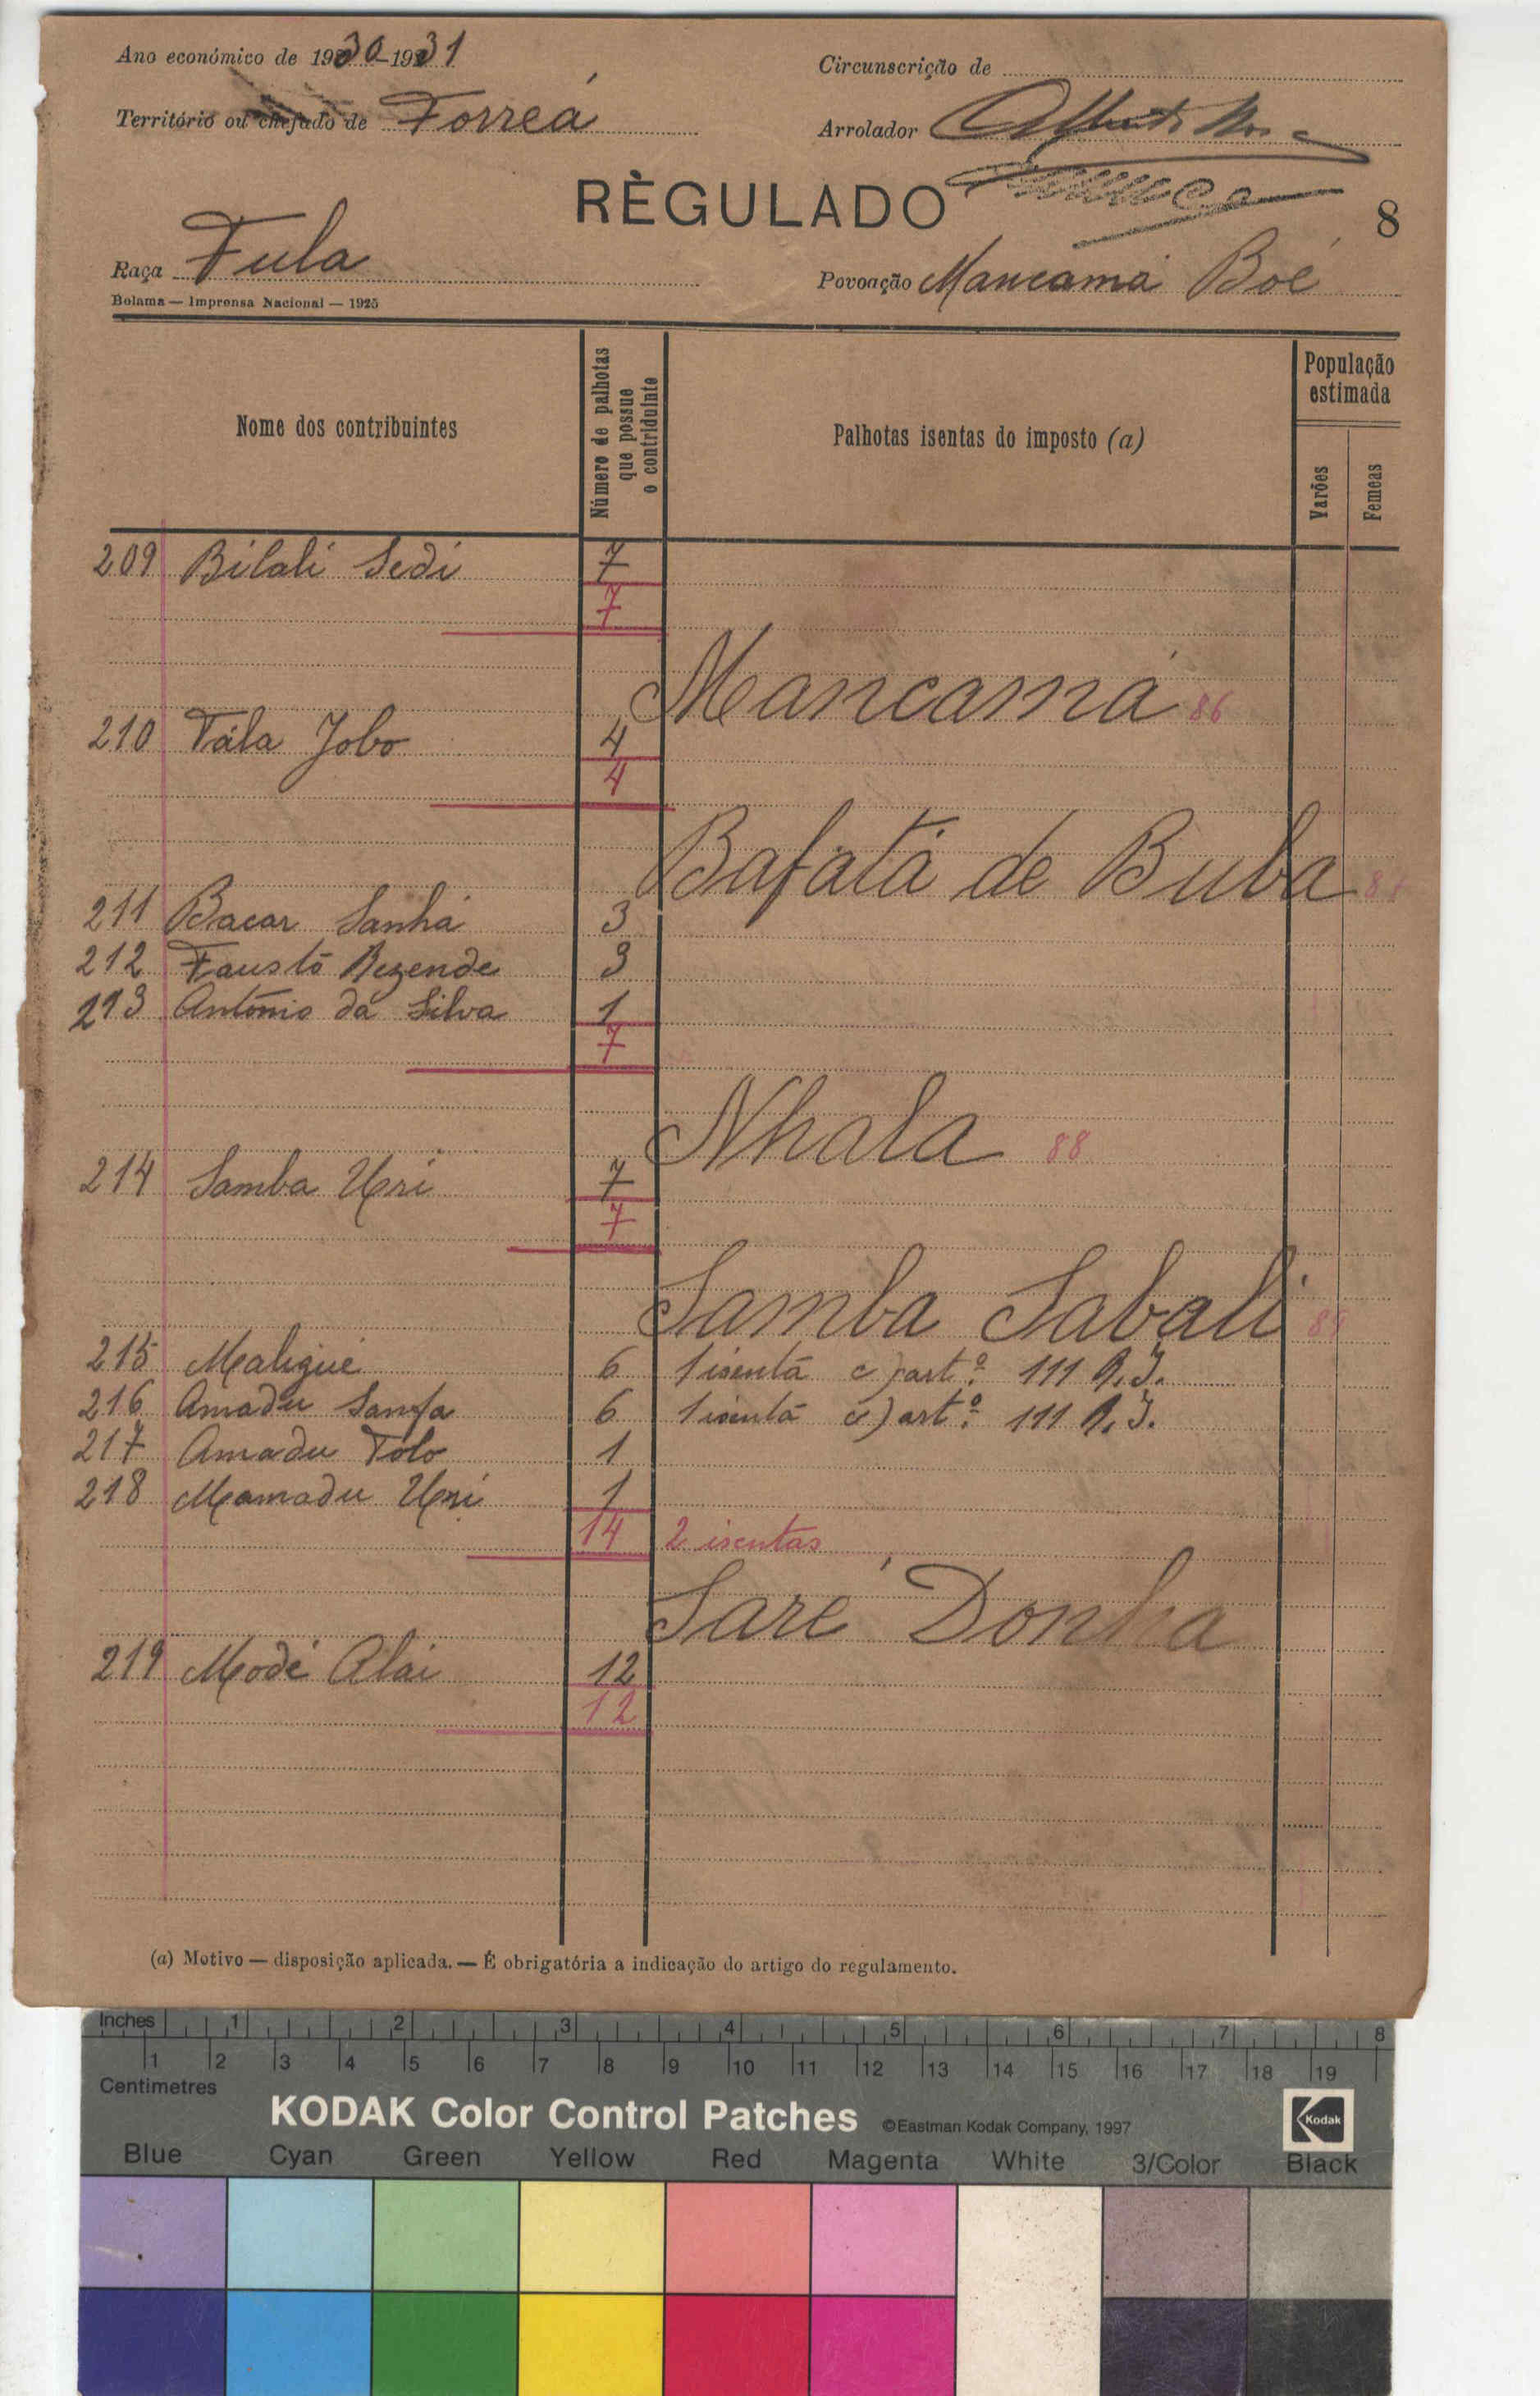 Ano económico de 1930-1931
Circunscrição de
Território ou chefado de Forreá
Arrolador Alberto
RÈGULADO
8
Raça Fula
Povoação Mancamá Boé
Bolama — Imprensa Nacional — 1925
Nome dos contribuintes
Número de palhotas
que possue
o contriduinte
Palhotas isentas do imposto (a)
População
estimada
Varões
Femeas
209 Bilali Sedi 7
7
Mancamá 86
210 Tála Jobo 4
4
Bafatá de Buba
211 Bacar Sanhá 3
212 Fausto Rezende 3
213 António da Silva 1
7
Nhala 88
214 Samba Uri 7
7
Samba Sabali
215 Maligué 6 1 isenta c) artº. 111 R.I.
216 Amadu Sanfa 6 1 isenta c) artº. 111 R.I.
217 Amadu Tolo 1
218 Mamadu Uri 1
14 2 isentas
Saré Donha
219 Modé Alai 12
12
(a) Motivo — disposição aplicada. — É obrigatória a indicação do artigo do regulamento.
Inches 1 2 3 4 5 6 7 8
1 2 3 4 5 6 7 8 9 10 11 12 13 14 15 16 17 18 19
Centimetres
KODAK Color Control Patches ©Eastman Kodak Company, 1997 Kodak
Blue Cyan Green Yellow Red Magenta White 3/Color Black